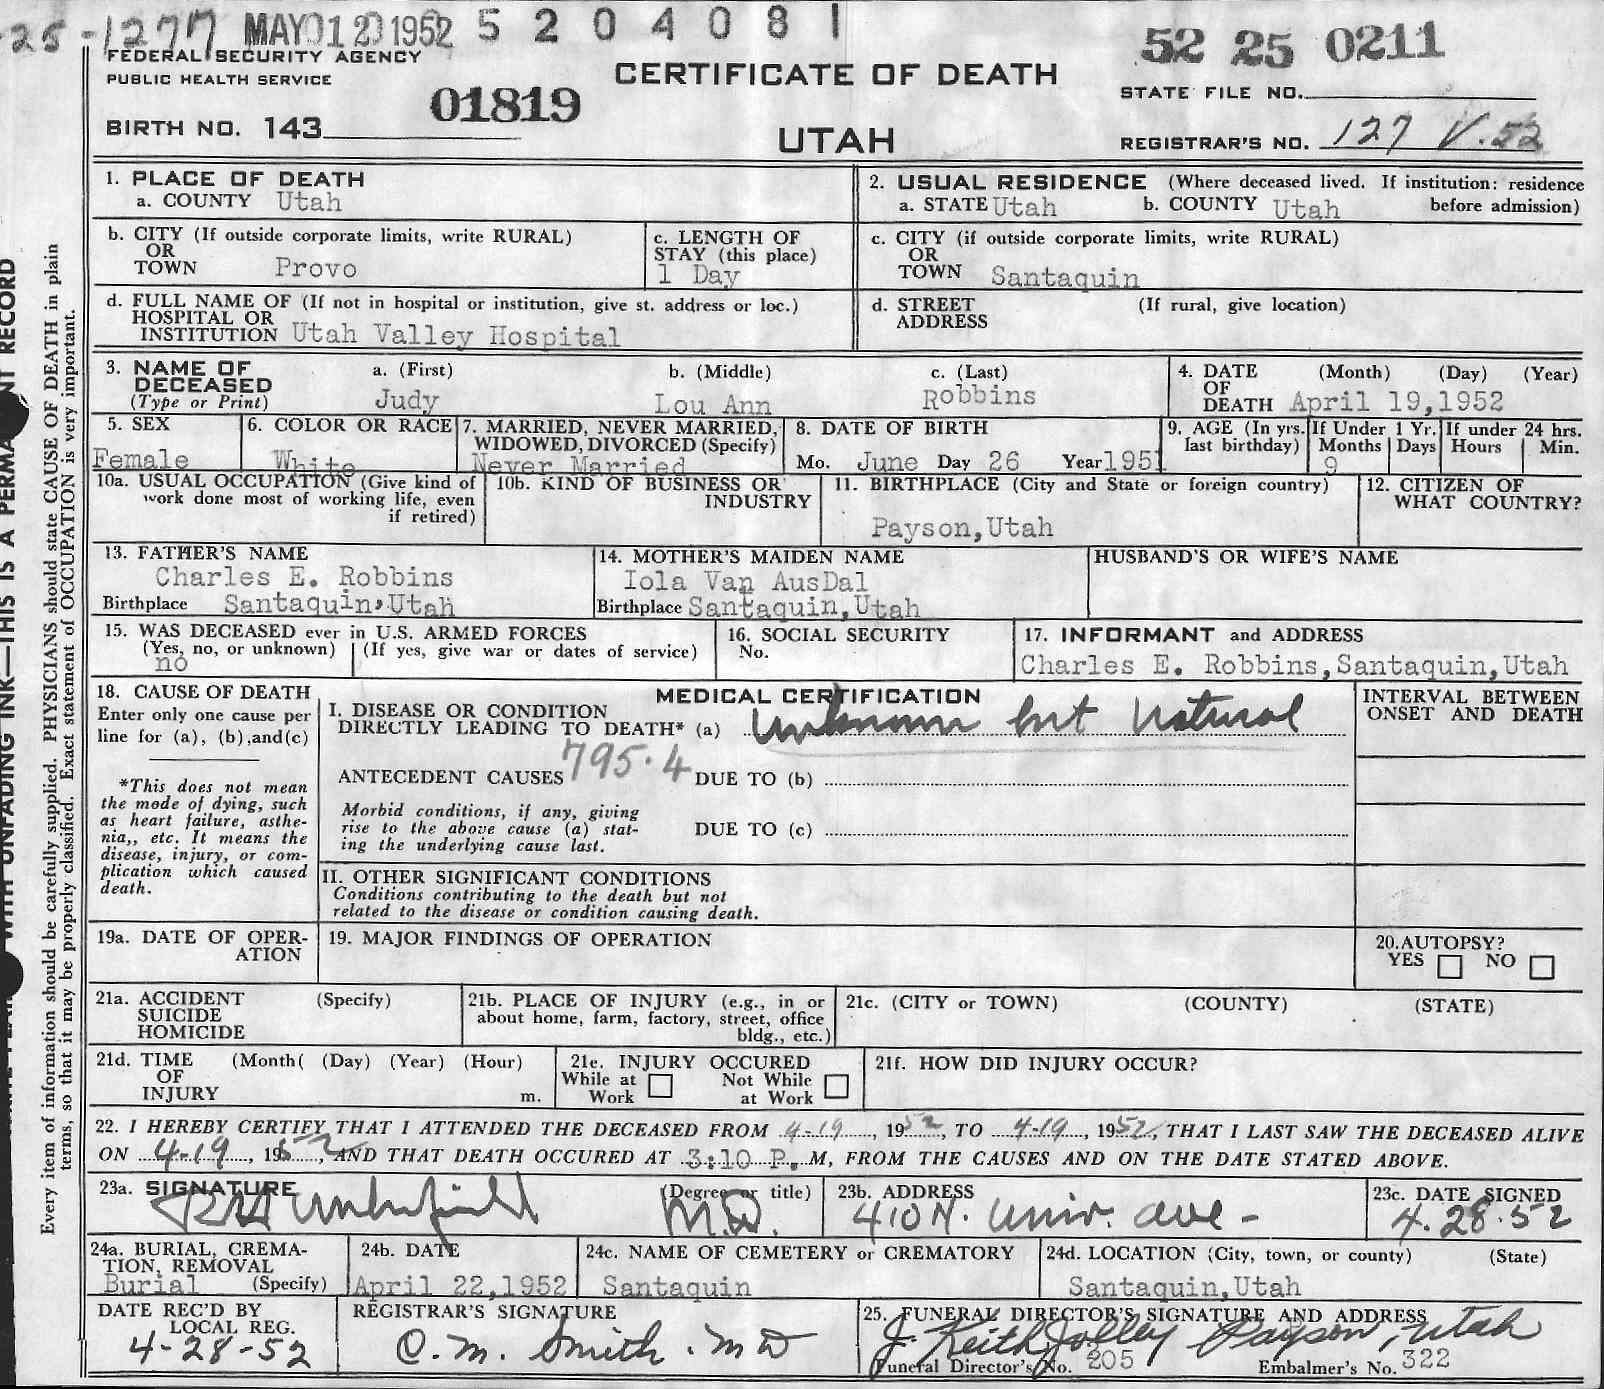 25-1277 MAY 12 1952 5 2 0 4 0 8 1
52 25 0211
FEDERAL SECURITY AGENCY
PUBLIC HEALTH SERVICE
CERTIFICATE OF DEATH
STATE FILE NO.
01819
BIRTH NO. 143
UTAH
REGISTRAR'S NO. 127 V.52
1. PLACE OF DEATH
a. COUNTY Utah
2. USUAL RESIDENCE (Where deceased lived. If institution: residence
a. STATE Utah b. COUNTY Utah before admission)
b. CITY (If outside corporate limits, write RURAL)
OR
TOWN Provo
c. LENGTH OF
STAY (this place)
1 Day
c. CITY (if outside corporate limits, write RURAL)
OR
TOWN Santaquin
d. FULL NAME OF (If not in hospital or institution, give st. address or loc.)
HOSPITAL OR
INSTITUTION Utah Valley Hospital
d. STREET (If rural, give location)
ADDRESS
3. NAME OF a. (First) b. (Middle) c. (Last)
DECEASED
(Type or Print) Judy Lou Ann Robbins
4. DATE (Month) (Day) (Year)
OF
DEATH April 19,1952
5. SEX
Female
6. COLOR OR RACE
White
7. MARRIED, NEVER MARRIED,
WIDOWED, DIVORCED (Specify)
Never Married
8. DATE OF BIRTH
Mo. June Day 26 Year 1951
9. AGE (In yrs. last birthday)
If Under 1 Yr.
Months Days
9
If under 24 hrs.
Hours Min.
10a. USUAL OCCUPATION (Give kind of
work done most of working life, even
if retired)
10b. KIND OF BUSINESS OR
INDUSTRY
11. BIRTHPLACE (City and State or foreign country)
Payson,Utah
12. CITIZEN OF
WHAT COUNTRY?
13. FATHER'S NAME
Charles E. Robbins
Birthplace Santaquin,Utah
14. MOTHER'S MAIDEN NAME
Iola Van AusDal
Birthplace Santaquin,Utah
HUSBAND'S OR WIFE'S NAME
15. WAS DECEASED ever in U.S. ARMED FORCES
(Yes, no, or unknown) (If yes, give war or dates of service)
no
16. SOCIAL SECURITY
No.
17. INFORMANT and ADDRESS
Charles E. Robbins,Santaquin,Utah
18. CAUSE OF DEATH
Enter only one cause per
line for (a), (b),and(c)
*This does not mean
the mode of dying, such
as heart failure, asthe-
nia,, etc. It means the
disease, injury, or com-
plication which caused
death.
MEDICAL CERTIFICATION
I. DISEASE OR CONDITION
DIRECTLY LEADING TO DEATH* (a) unknown but natural
ANTECEDENT CAUSES 795.4 DUE TO (b)
Morbid conditions, if any, giving
rise to the above cause (a) stat-
ing the underlying cause last.
DUE TO (c)
II. OTHER SIGNIFICANT CONDITIONS
Conditions contributing to the death but not
related to the disease or condition causing death.
INTERVAL BETWEEN
ONSET AND DEATH
19a. DATE OF OPER-
ATION
19. MAJOR FINDINGS OF OPERATION
20.AUTOPSY?
YES NO
21a. ACCIDENT (Specify)
SUICIDE
HOMICIDE
21b. PLACE OF INJURY (e.g., in or
about home, farm, factory, street, office
bldg., etc.)
21c. (CITY or TOWN) (COUNTY) (STATE)
21d. TIME (Month( (Day) (Year) (Hour)
OF
INJURY m.
21e. INJURY OCCURED
While at Work Not While at Work
21f. HOW DID INJURY OCCUR?
22. I HEREBY CERTIFY THAT I ATTENDED THE DECEASED FROM 4-19, 1952, TO 4-19, 1952, THAT I LAST SAW THE DECEASED ALIVE
ON 4-19, 1952, AND THAT DEATH OCCURED AT 3:10 P. M, FROM THE CAUSES AND ON THE DATE STATED ABOVE.
23a. SIGNATURE (Degree or title)
M.D.
23b. ADDRESS
410 N. Univ. Ave -
23c. DATE SIGNED
4.28.52
24a. BURIAL, CREMA-
TION, REMOVAL
Burial (Specify)
24b. DATE
April 22,1952
24c. NAME OF CEMETERY or CREMATORY
Santaquin
24d. LOCATION (City, town, or county) (State)
Santaquin,Utah
DATE REC'D BY
LOCAL REG.
4-28-52
REGISTRAR'S SIGNATURE
C. M. Smith. MD
25. FUNERAL DIRECTOR'S SIGNATURE AND ADDRESS
J. Keith Jolley Payson, Utah
Funeral Director's No. 205 Embalmer's No. 322
Every item of information should be carefully supplied. PHYSICIANS should state CAUSE OF DEATH in plain
terms, so that it may be properly classified. Exact statement of OCCUPATION is very important.
WITH UNFADING INK—THIS IS A PERMA NT RECORD